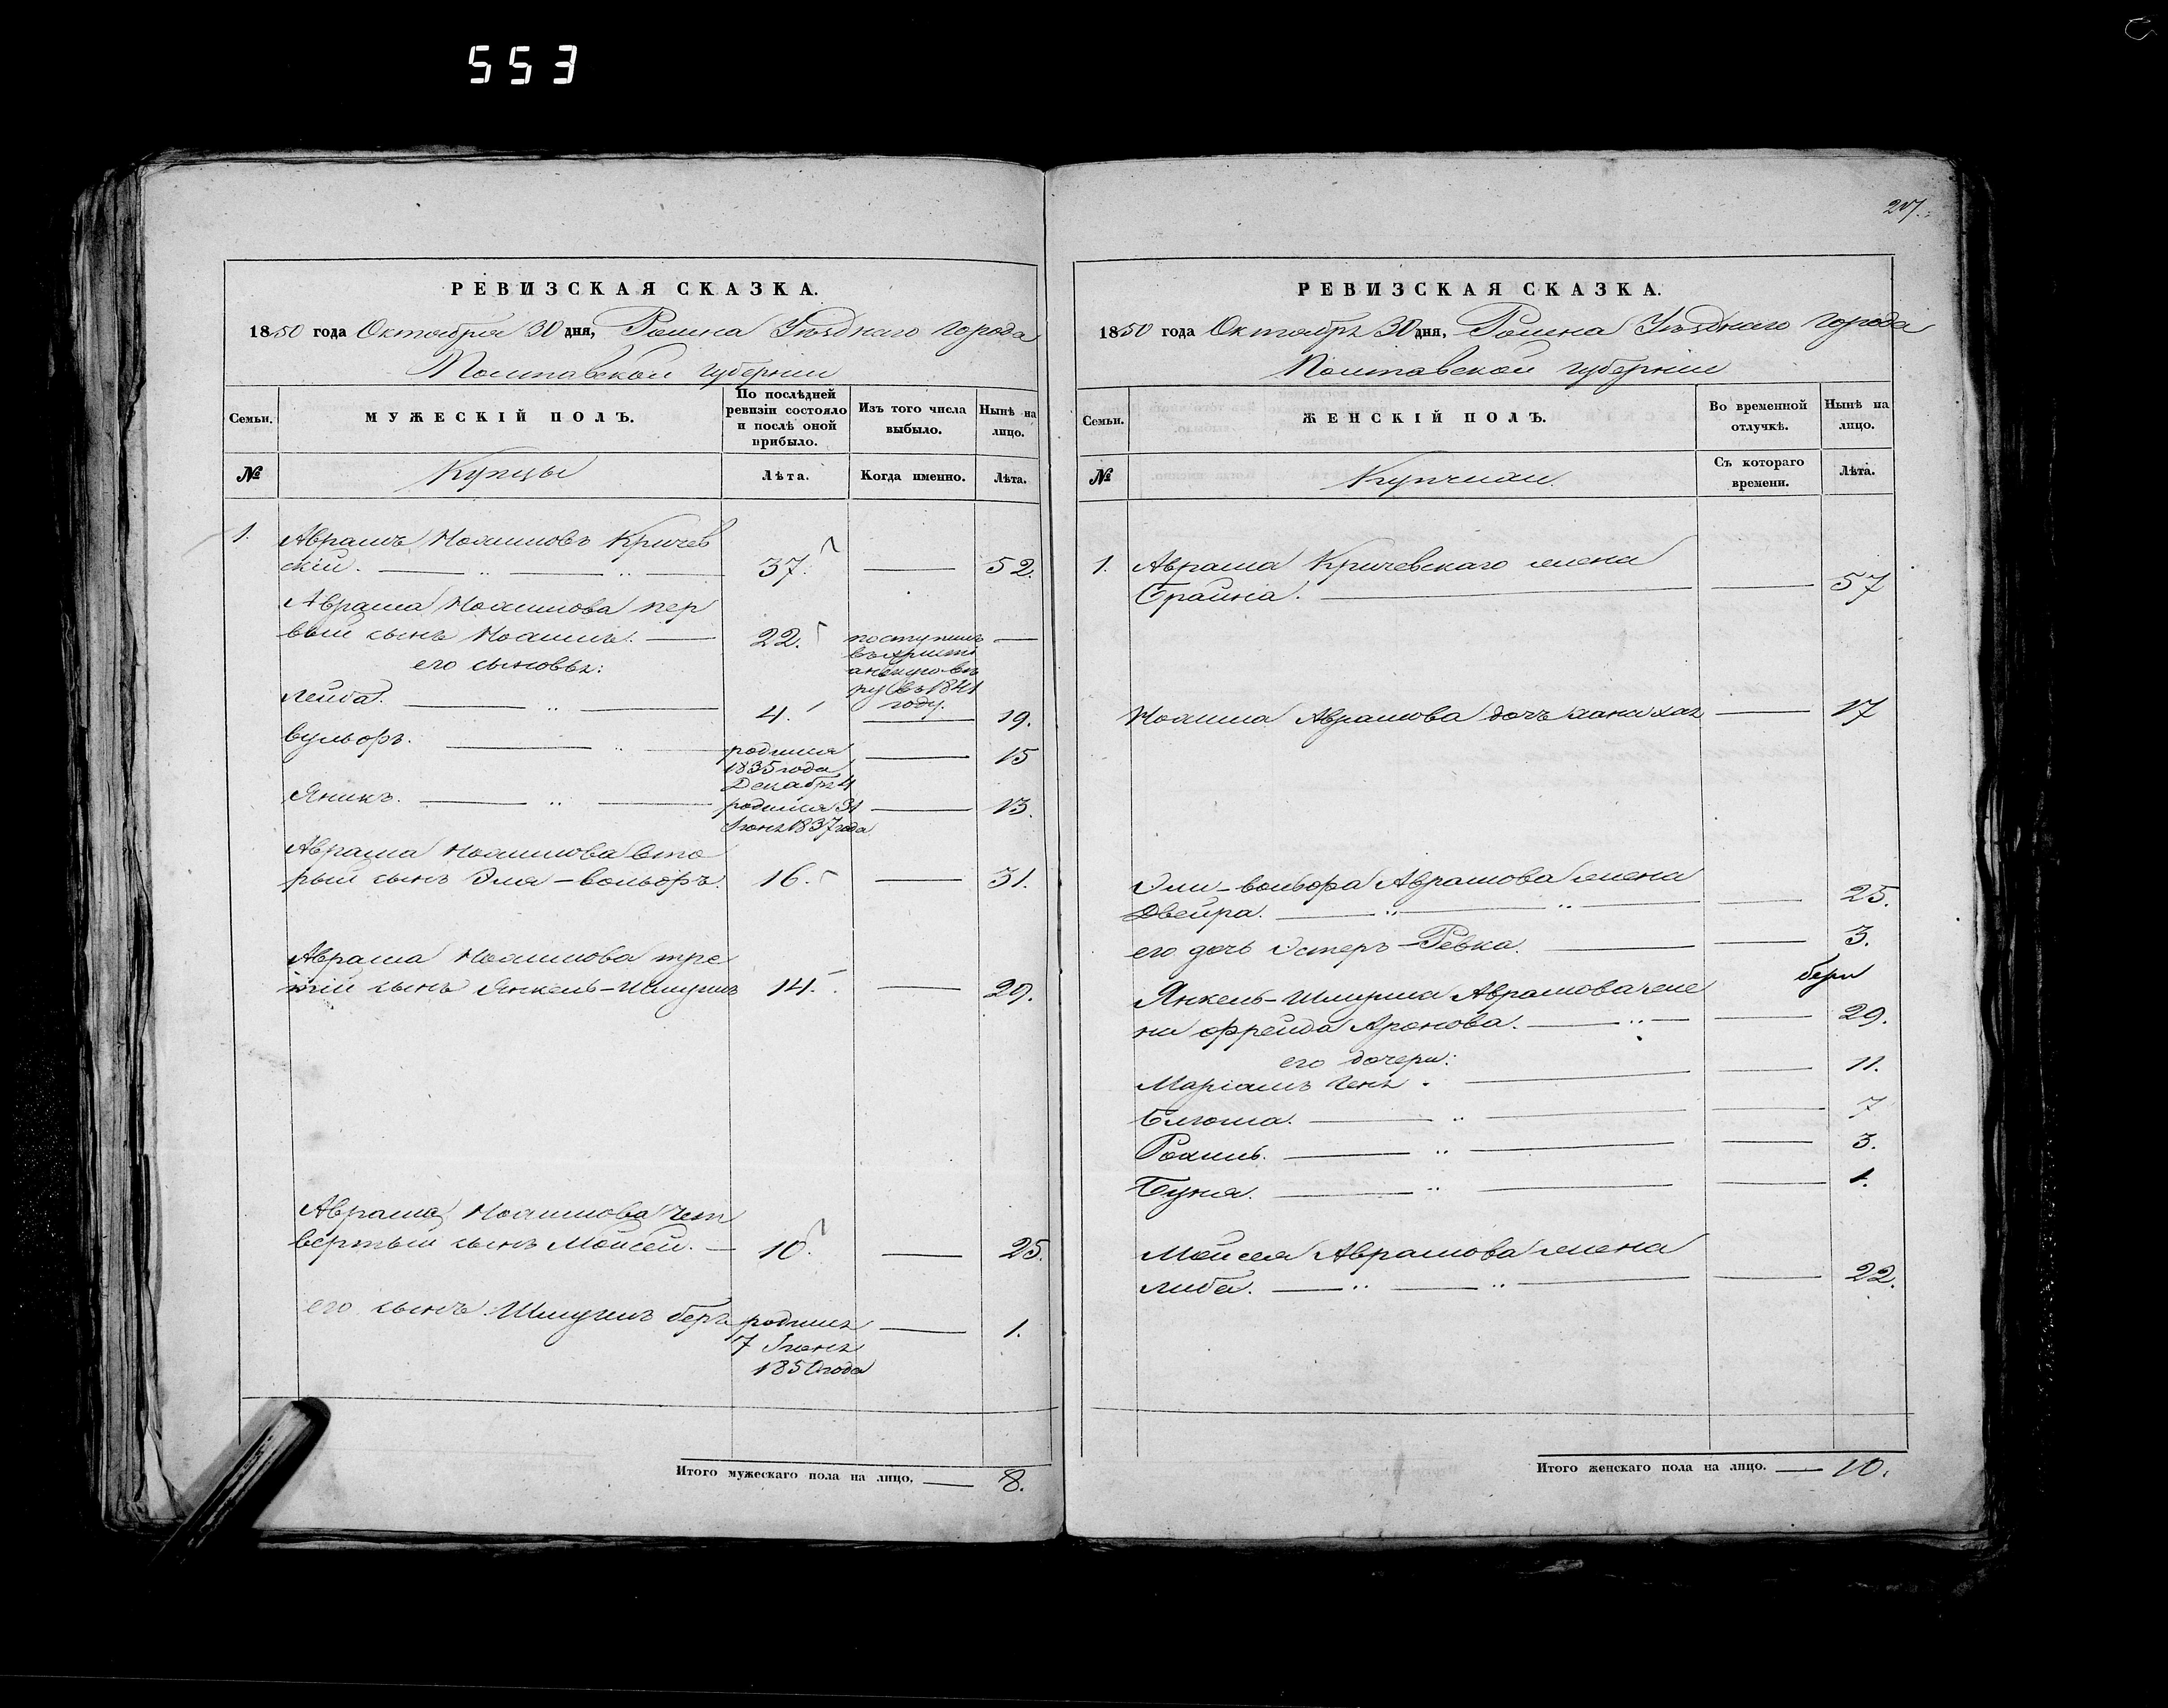 553
РЕВИЗСКАЯ СКАЗКА.
1850 года Октября 30 дня, Ромна Уѣзднаго города
Полтавской губерніи
Семьи.
МУЖЕСКІЙ ПОЛЪ.
По послѣдней ревизіи состояло и послѣ оной прибыло.
Изъ того числа выбыло.
Нынѣ на лицо.
№
Купцы
Лѣта.
Когда именно.
Лѣта.
1. Аврамъ Хаимовъ Кричев
скій. 37. 52.
Аврама Хаимова пер
вый сынъ Хаимъ. 22. поступилъ
въ христі
анскую вѣ
ру въ 1841
году.
его сыновья:
Лейба. 4. 19.
Вульфъ. родился 15
1835 года
Декабря 4
Яникъ. родился 31 13.
1837 года
Аврама Хаимова вто
рый сынъ Эля-вольфъ. 16. 31.
Аврама Хаимова тре
тій сынъ Янкель-Шмуилъ 14. 29.
Аврама Хаимова чет
вертый сынъ Мойсей. 10. 25.
его сынъ Шмуилъ беръ 1.
7
1850 года
Итого мужескаго пола на лицо. 8.
РЕВИЗСКАЯ СКАЗКА.
1850 года Октября 30 дня, Ромна Уѣзднаго города
Полтавской губерніи
Семьи.
ЖЕНСКІЙ ПОЛЪ.
Во временной отлучкѣ.
Нынѣ на лицо.
№
Купчихи.
Съ котораго времени.
Лѣта.
1. Аврама Кричевскаго жена
Брайна. 57
Хаима Аврамова дочь 17
Эли-вольфа Аврамова жена
Двейра. 25.
его дочь Эстеръ-Ревка. 3.
Янкель-Шмуила Аврамова же
на Фрейда Аронова. 29.
его дочери:
Маріамъ 11.
Блюма. 7
3.
Буня. 1.
Мойсея Аврамова жена
Либа. 22.
Итого женскаго пола на лицо. 10.